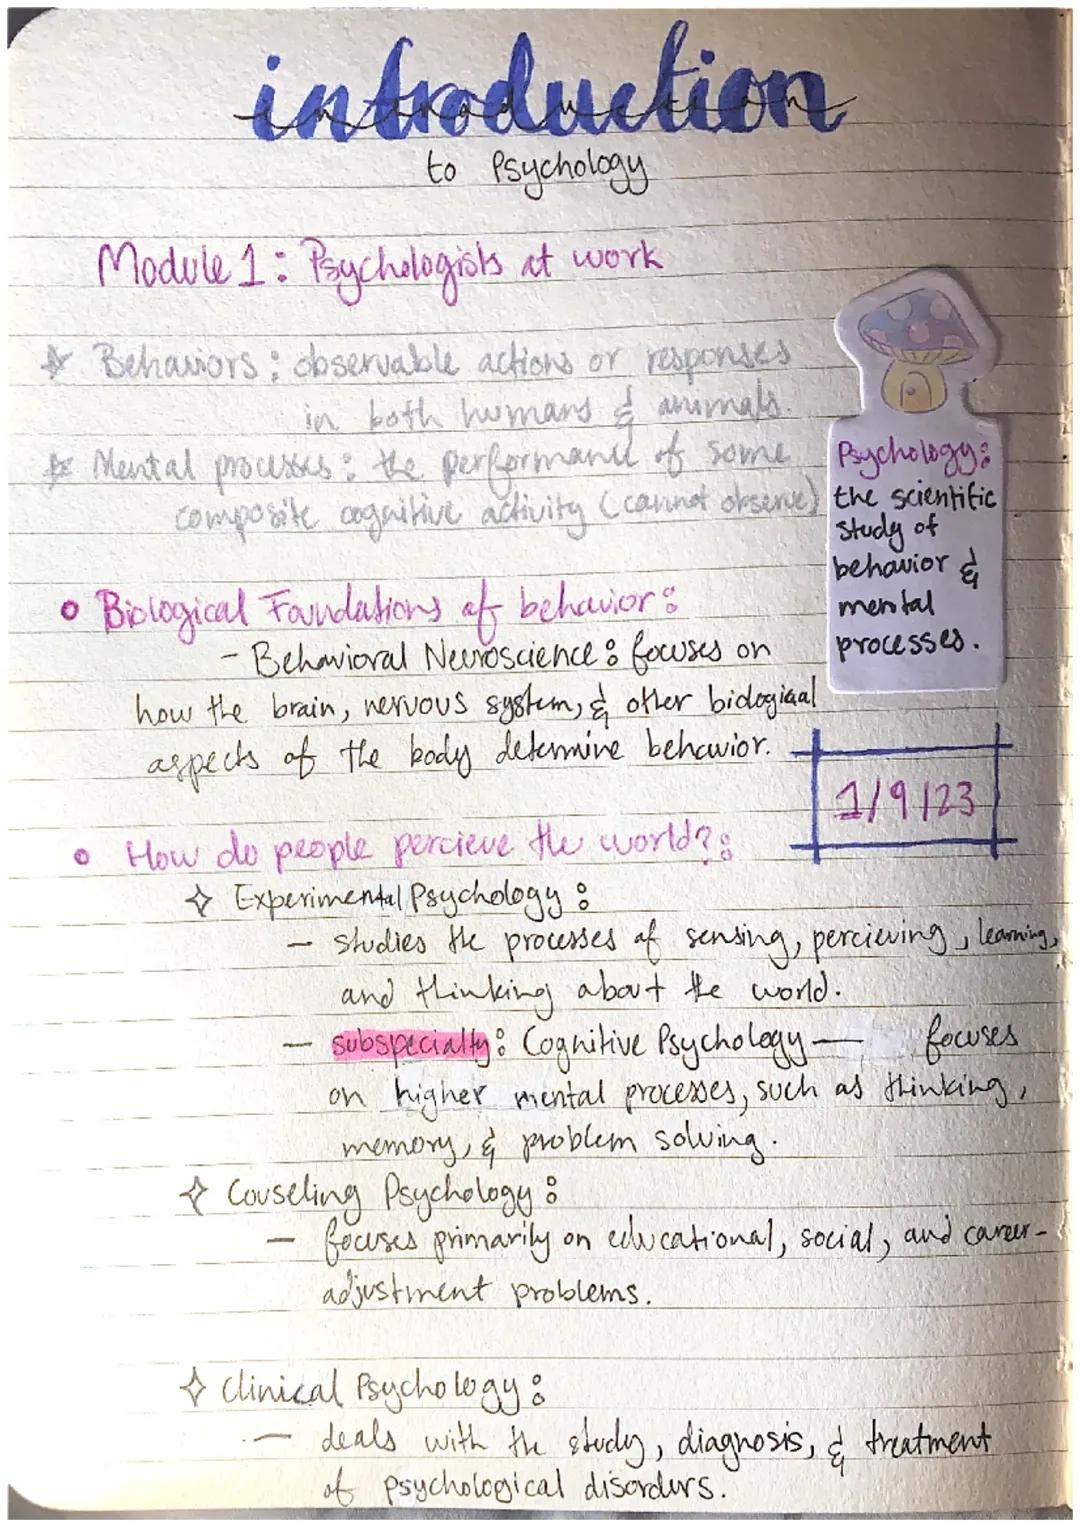 introduction
introduction
to Psychology
Module 1: Psychologists at work
Behaviors: observable actions or responses
in both humans & animals.
Mental processes: the performance of some
composite cognitive activity (cannot observe)
Psychology:
the scientific
study of
behavior &
mental
processes.
Biological Foundations of behavior:
- Behavioral Neuroscience: focuses on
how the brain, nervous system, & other biological
aspects of the body determine behavior.
1/9/23
How do people percieve the world?:
Experimental Psychology:
- studies the processes of sensing, percieving, learning,
and thinking about the world.
- subspecialty: Cognitive Psychology — focuses
on higher mental processes, such as thinking,
memory, & problem solving.
Couseling Psychology:
- focuses primarily on educational, social, and career-
adjustment problems.
Clinical Psychology:
- deals with the study, diagnosis, & treatment
of psychological disorders.